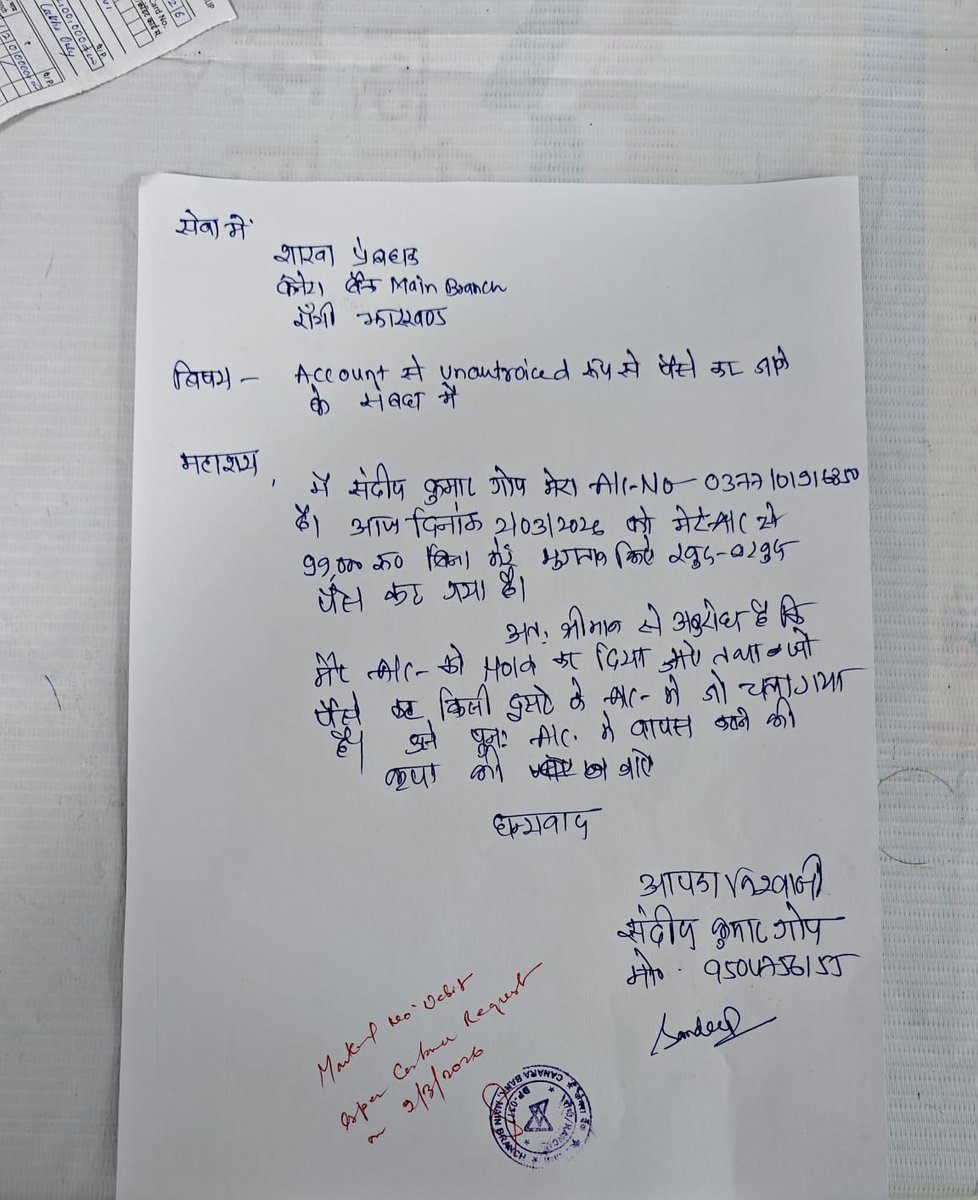 सेवा में
शाखा प्रबंधक
केनरा बैंक Main Branch
राँची झारखण्ड
विषय - Account से unautroiced रूप से पैसे कट जाने
के संबंध में
महाशय,
मैं संदीप कुमार गोप मेरा A/C-NO- 0377101916850
है। आज दिनांक 2/03/2026 को मेरे A/C से
99,000 रु० बिना कोई भुगतान किए खुद-ब-खुद
पैसे कट गया है।
अतः श्रीमान से अनुरोध है कि
मेरे A/C- को Hold कर दिया जाए तथा जो
पैसे किसी दुसरे के A/C- में जो चला गया
है। उसे पुनः A/C. में वापस करने की
कृपा की जाए
धन्यवाद
आपका विश्वासी
संदीप कुमार गोप
मो० 9504756155
Sandeep
Marked No Debit
as per Customer Request
on 2/3/2026
CANARA BANK, MAIN BRANCH
DP-0377
RANCHI
Only